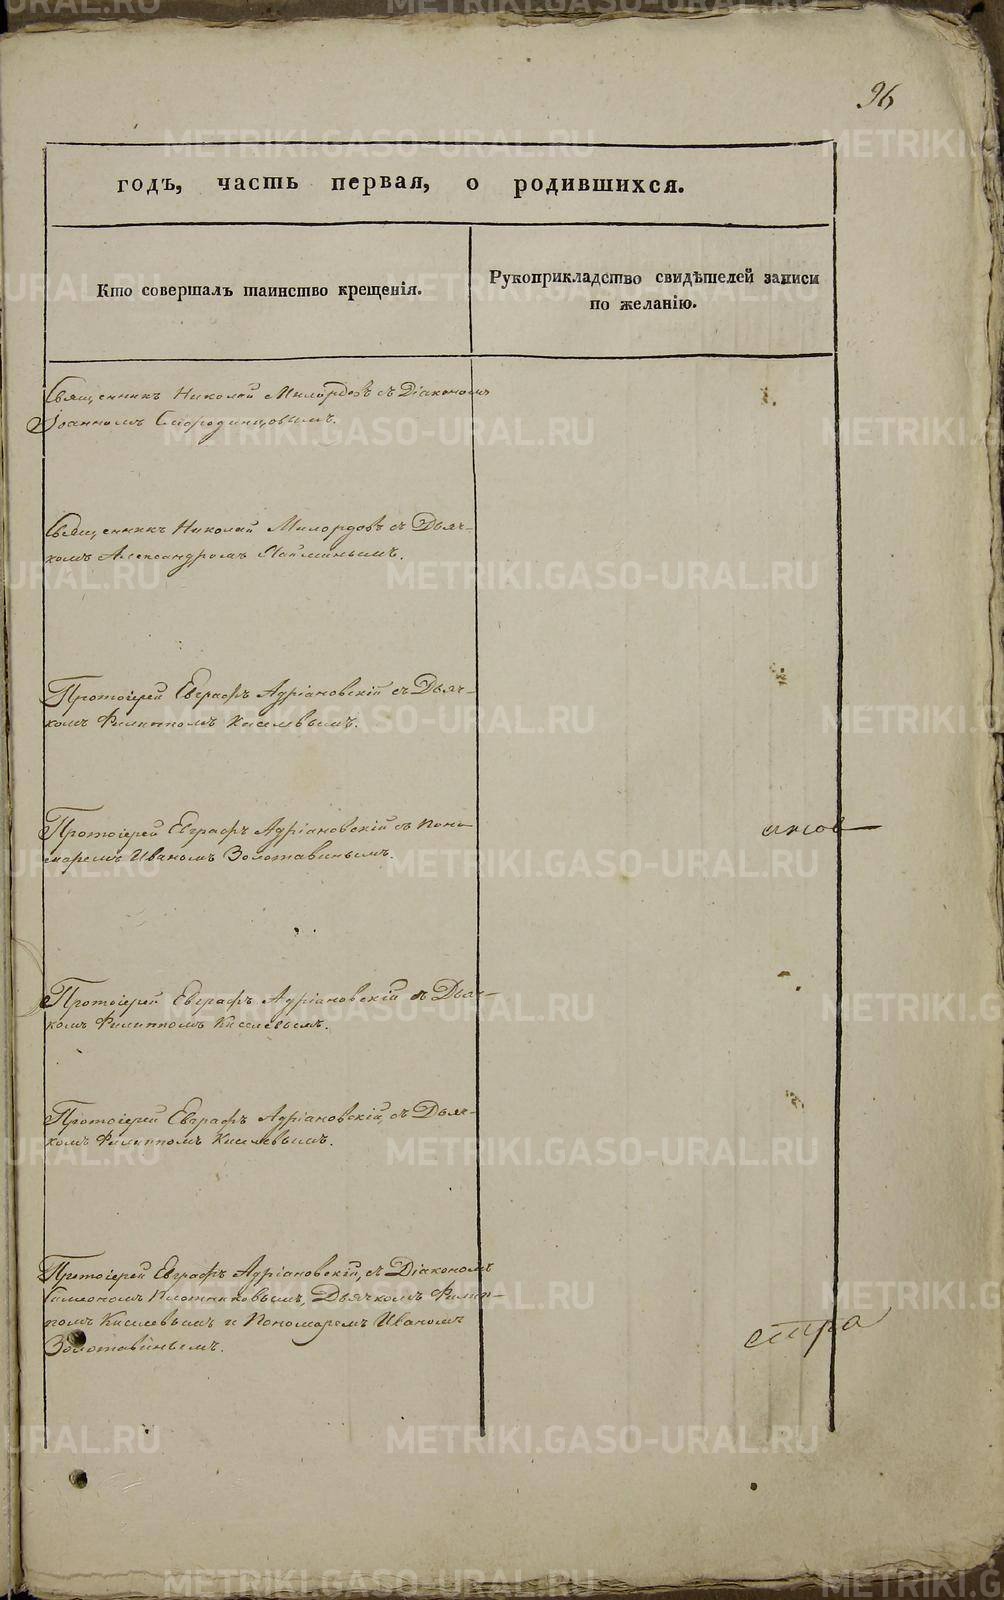 96
годъ, часть первая, о родившихся.
Кто совершалъ таинство крещенія.
Рукоприкладство свидѣтелей записи
по желанію.
Священникъ Николай Милордовъ съ Діакономъ
Іоанномъ Смородинцовымъ.
Священникъ Николай Милордовъ съ Дьяч-
комъ Александромъ
Протоіерей Евграфъ Адріановскій съ Дьяч-
комъ Филиппомъ Киселевымъ.
Протоіерей Евграфъ Адріановскій съ Поно-
маремъ Иваномъ Золотавинымъ.
Протоіерей Евграфъ Адріановскій съ Дьяч-
комъ Филиппомъ Киселевымъ.
Протоіерей Евграфъ Адріановскій, съ Дьяч-
комъ Филиппомъ Киселевымъ.
Протоіерей Евграфъ Адріановскій, съ Діакономъ
Симеономъ Плотниковымъ, Дьячкомъ Филип-
помъ Киселевымъ и Пономаремъ Иваномъ
Золотавинымъ.
стра
METRIKI.GASO-URAL.RU